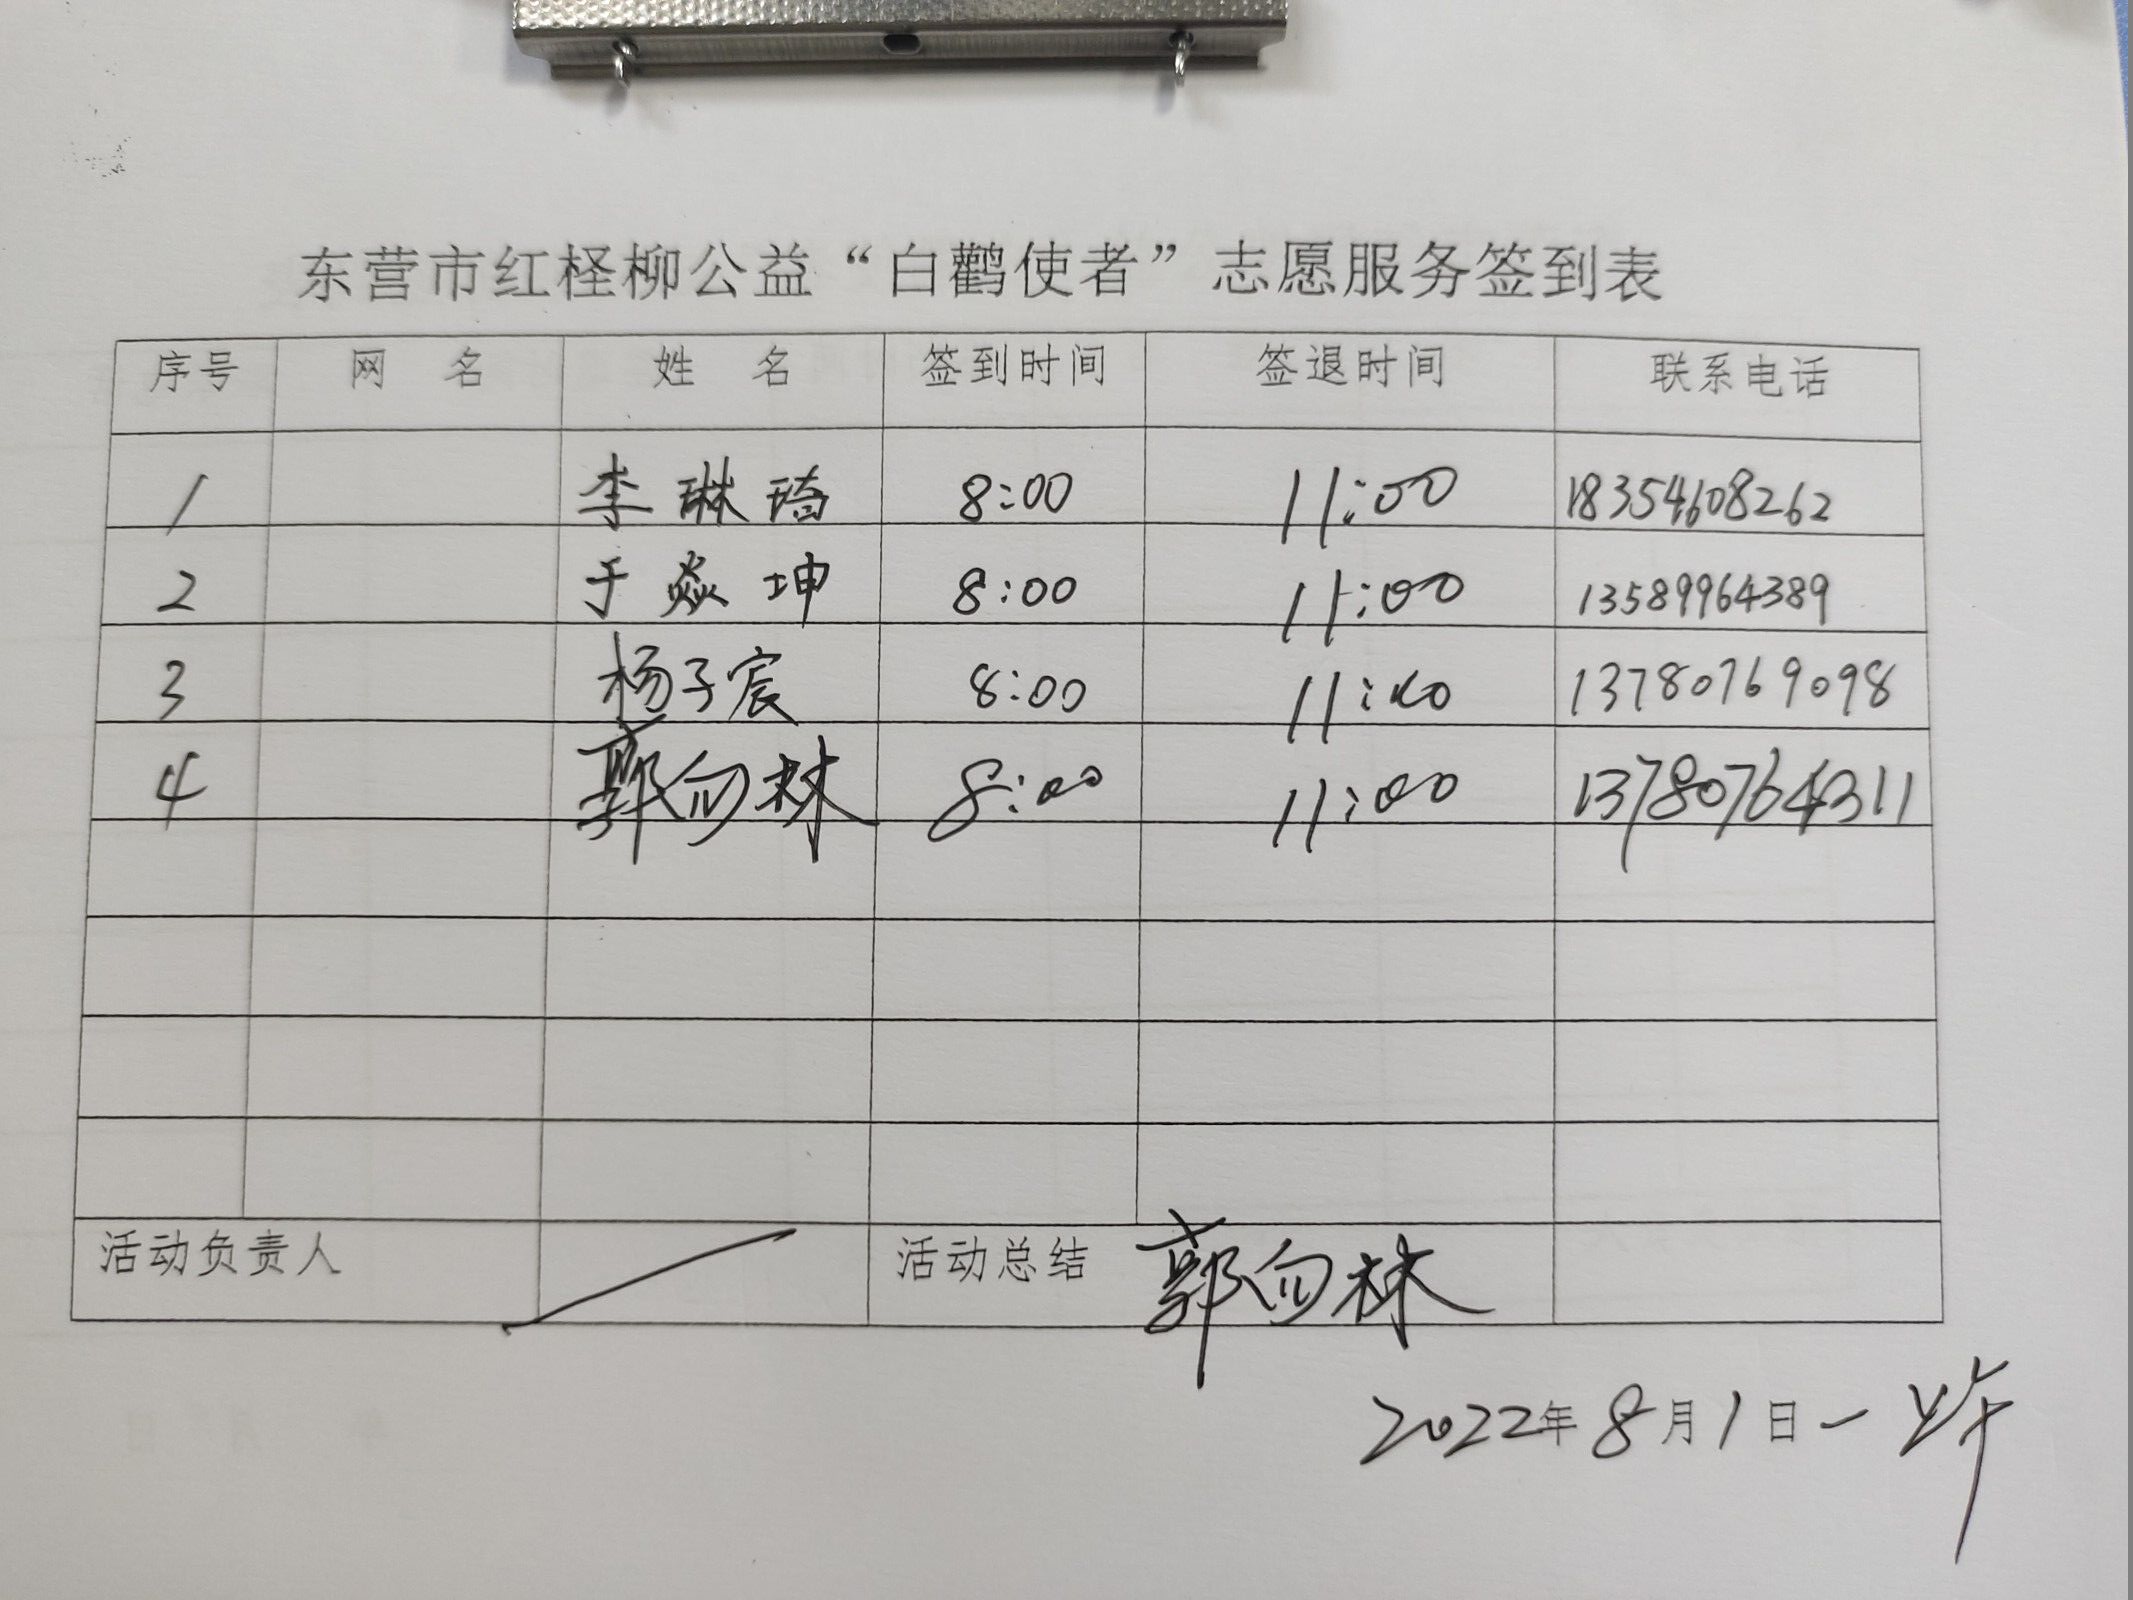 东营市红柽柳公益“白鹳使者”志愿服务签到表
序号 网名 姓名 签到时间 签退时间 联系电话
1 李琳琦 8:00 11:00 18354608262
2 于焱坤 8:00 11:00 13589964389
3 杨子宸 8:00 11:00 13780769098
4 郭向林 8:00 11:00 13780764311
活动负责人 活动总结 郭向林
2022年8月1日一上午